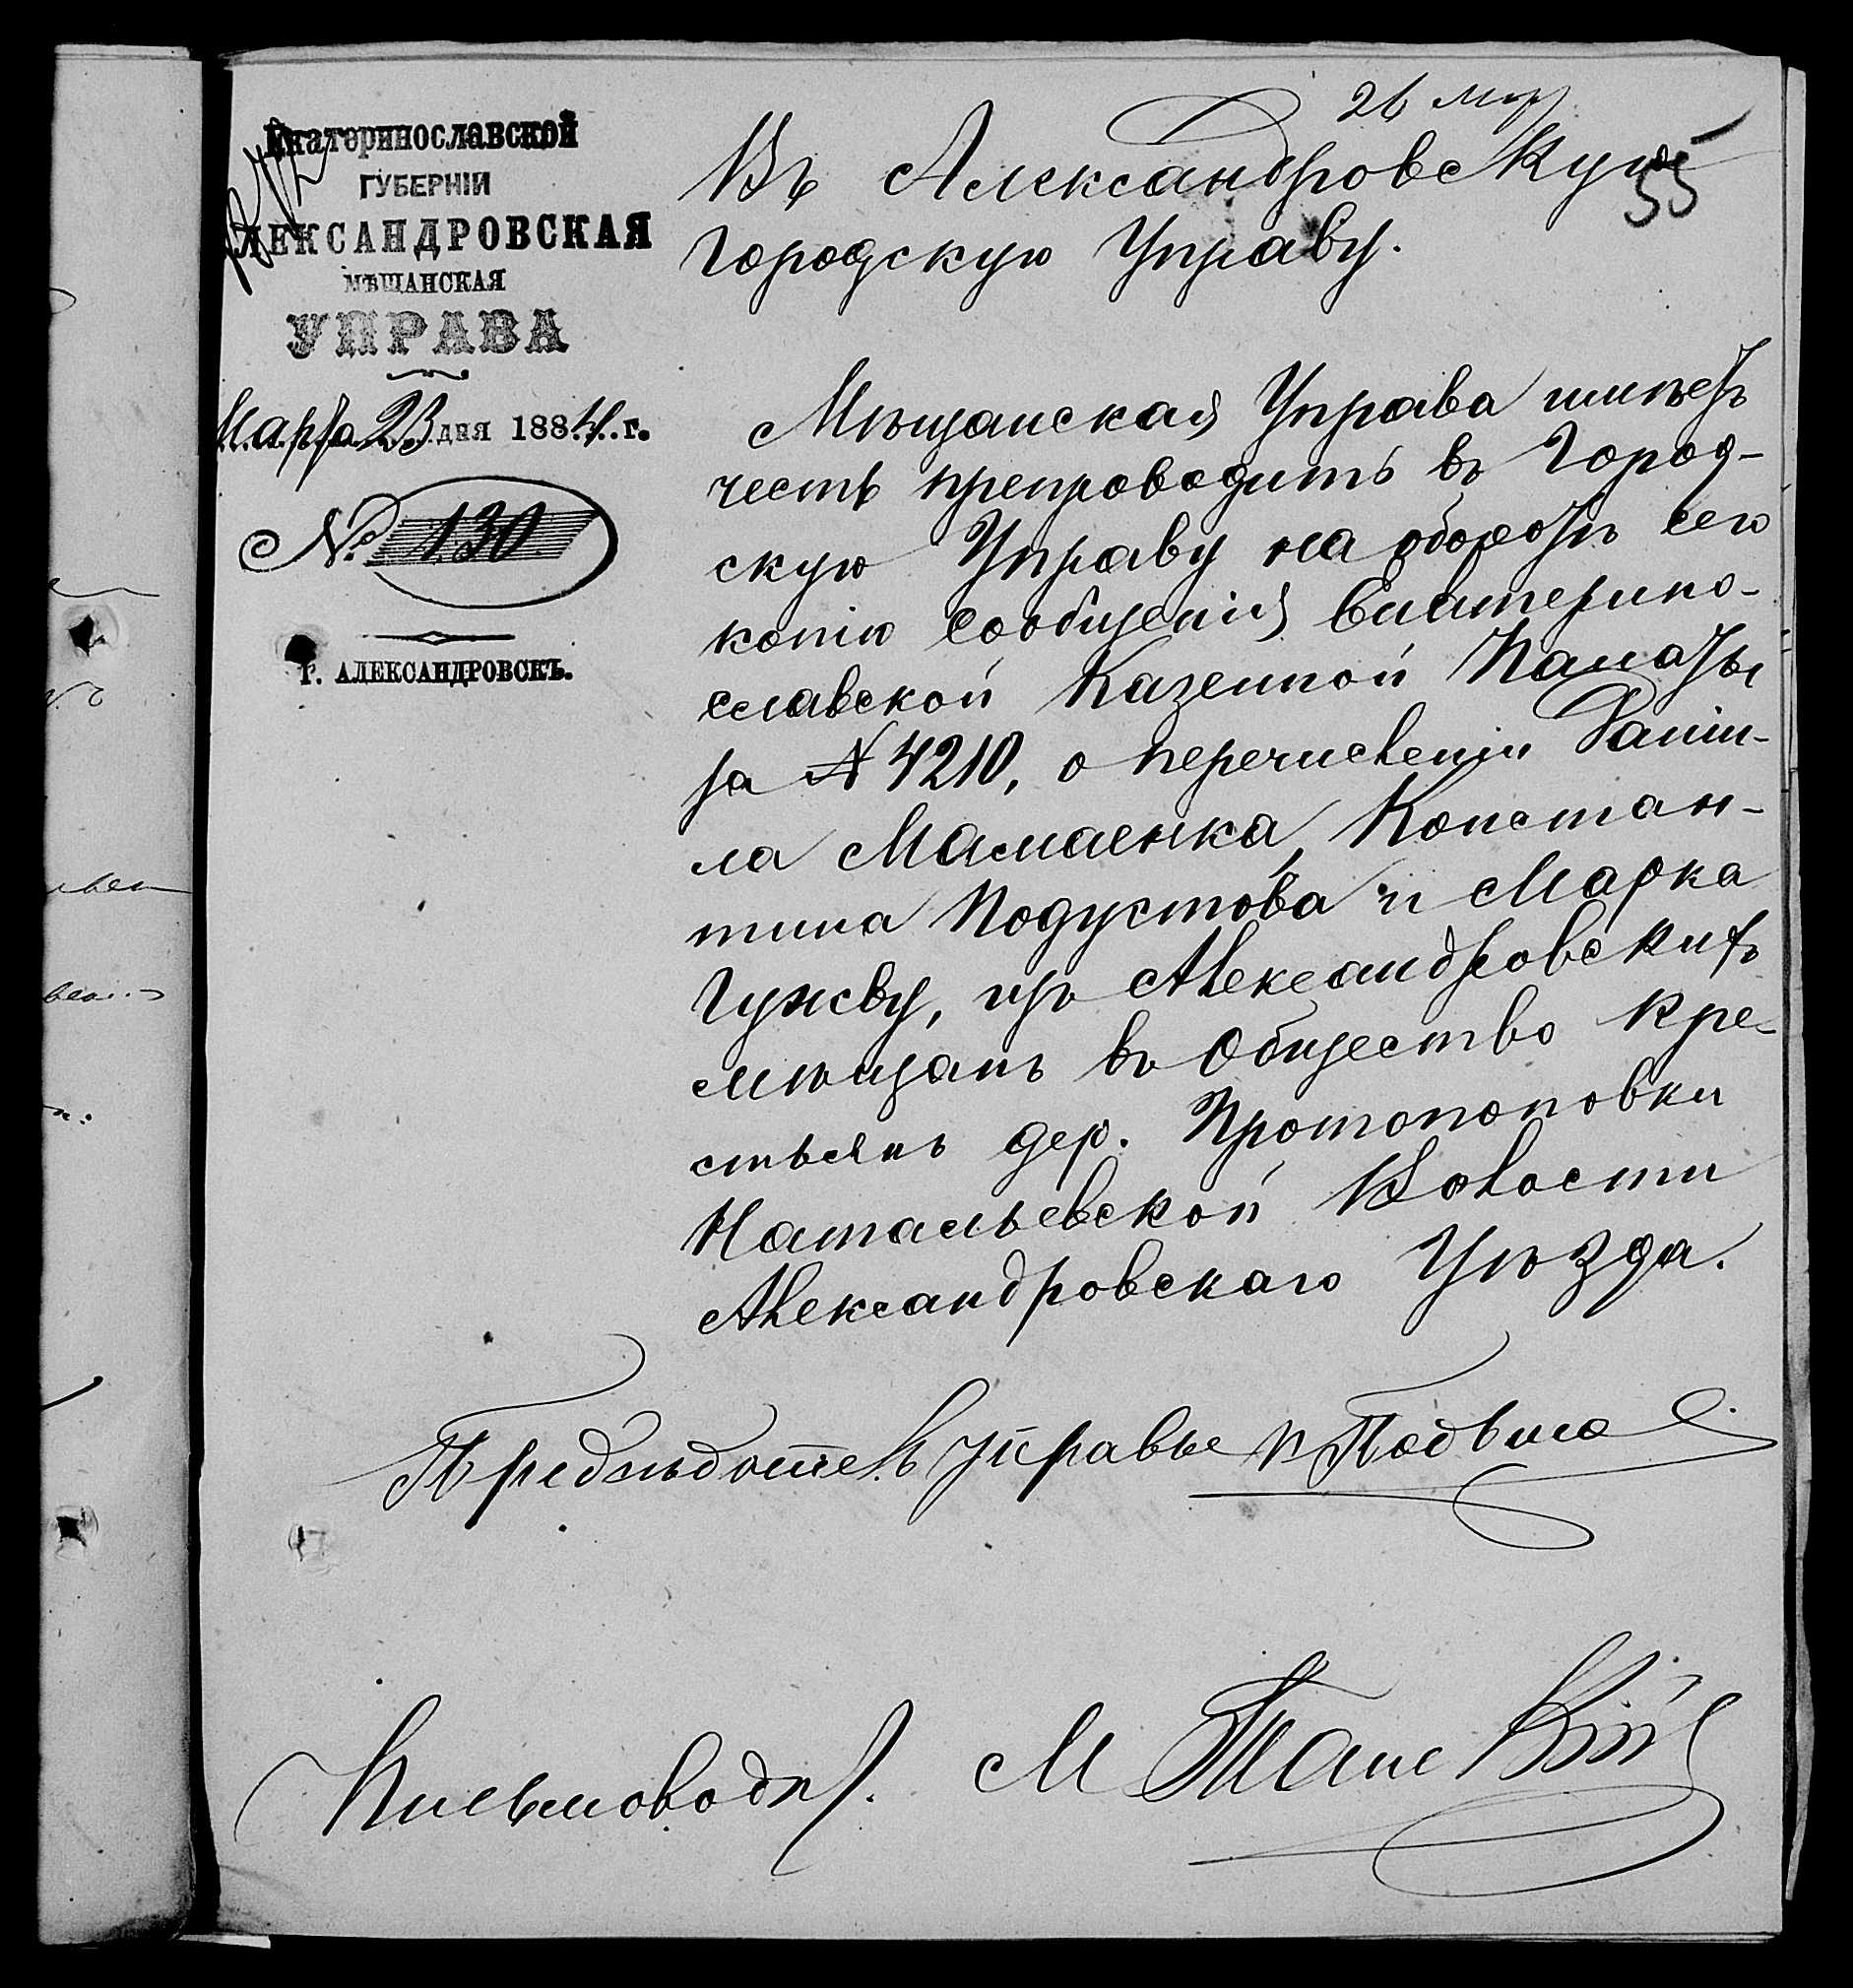 26 мар
55
Екатеринославской
ГУБЕРНІИ
АЛЕКСАНДРОВСКАЯ
МѢЩАНСКАЯ
УПРАВА
Марта 23 дня 1884 г.
№ 130
г. АЛЕКСАНДРОВСКЪ.
Въ Александровскую
Городскую Управу.
Мѣщанская Управа имѣетъ
честь препроводить въ Город-
скую Управу на оборотѣ сего
копію сообщенія Екатерино-
славской Казенной Палаты
за № 4210, о перечисленіи Даніи-
ла Мамаенка, Констан-
тина Подустова и Марка
Гужву, изъ Александровскихъ
мѣщанъ въ Общество кре-
стьянъ дер. Протопоповки
Натальевской Волости
Александровскаго Уѣзда.
Предсѣдатель управы
Письмоводит.